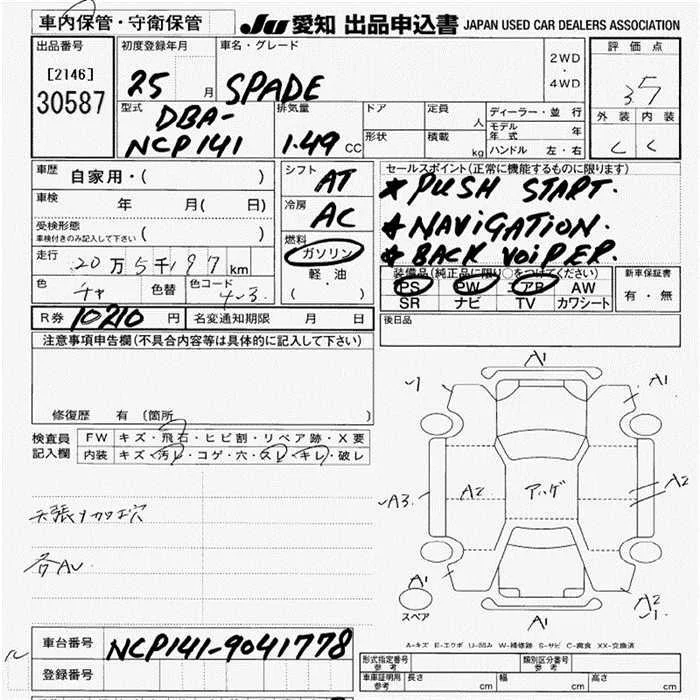 車内保管・守衛保管
JU 愛知 出品申込書 JAPAN USED CAR DEALERS ASSOCIATION
出品番号
[2146]
30587
初度登録年月
25 月
車名・グレード
SPADE
2WD
・
4WD
評価点
3.5
外装 内装
C C
型式
DBA-
NCP141
排気量
1.49 CC
ドア
定員
人
形状
積載
kg
ディーラー・並行
モデル年式 年
ハンドル 左・右
車歴
自家用・( )
車検 年 月( 日)
受検形態
車検付きのみ記入して下さい ( )
走行
20万5千197km
色
チャ
色替
色コード
4-3.
R券 10210 円
名変通知期限 月 日
シフト
AT
冷房
AC
燃料
ガソリン
軽・油
( )
セールスポイント(正常に機能するものに限ります)
★PUSH START.
★NAVIGATION.
★BACK VOIPER.
装備品(純正品に限り○をつけてください)
PS PW エアB AW
SR ナビ TV カワシート
新車保証書
有・無
後日品
注意事項申告欄(不具合内容等は具体的に記入して下さい)
修復歴 有 (箇所 )
検査員
記入欄
FW キズ・飛石・ヒビ割・リペア跡・X要
内装 キズ・汚レ・コゲ・穴・スレ・キレ・破レ
天張
各AU.
A1
A1
A3
A2
アハゲ
A2
A1
スペア
A1
A2
A-キズ E-エクボ U-凹み W-補修跡 S-サビ C-腐食 XX-交換済
車台番号 NCP141-9041778
登録番号
形式指定番号
参考
類別区分番号
参考
車庫証明用
参考
長さ cm 幅 cm 高さ cm